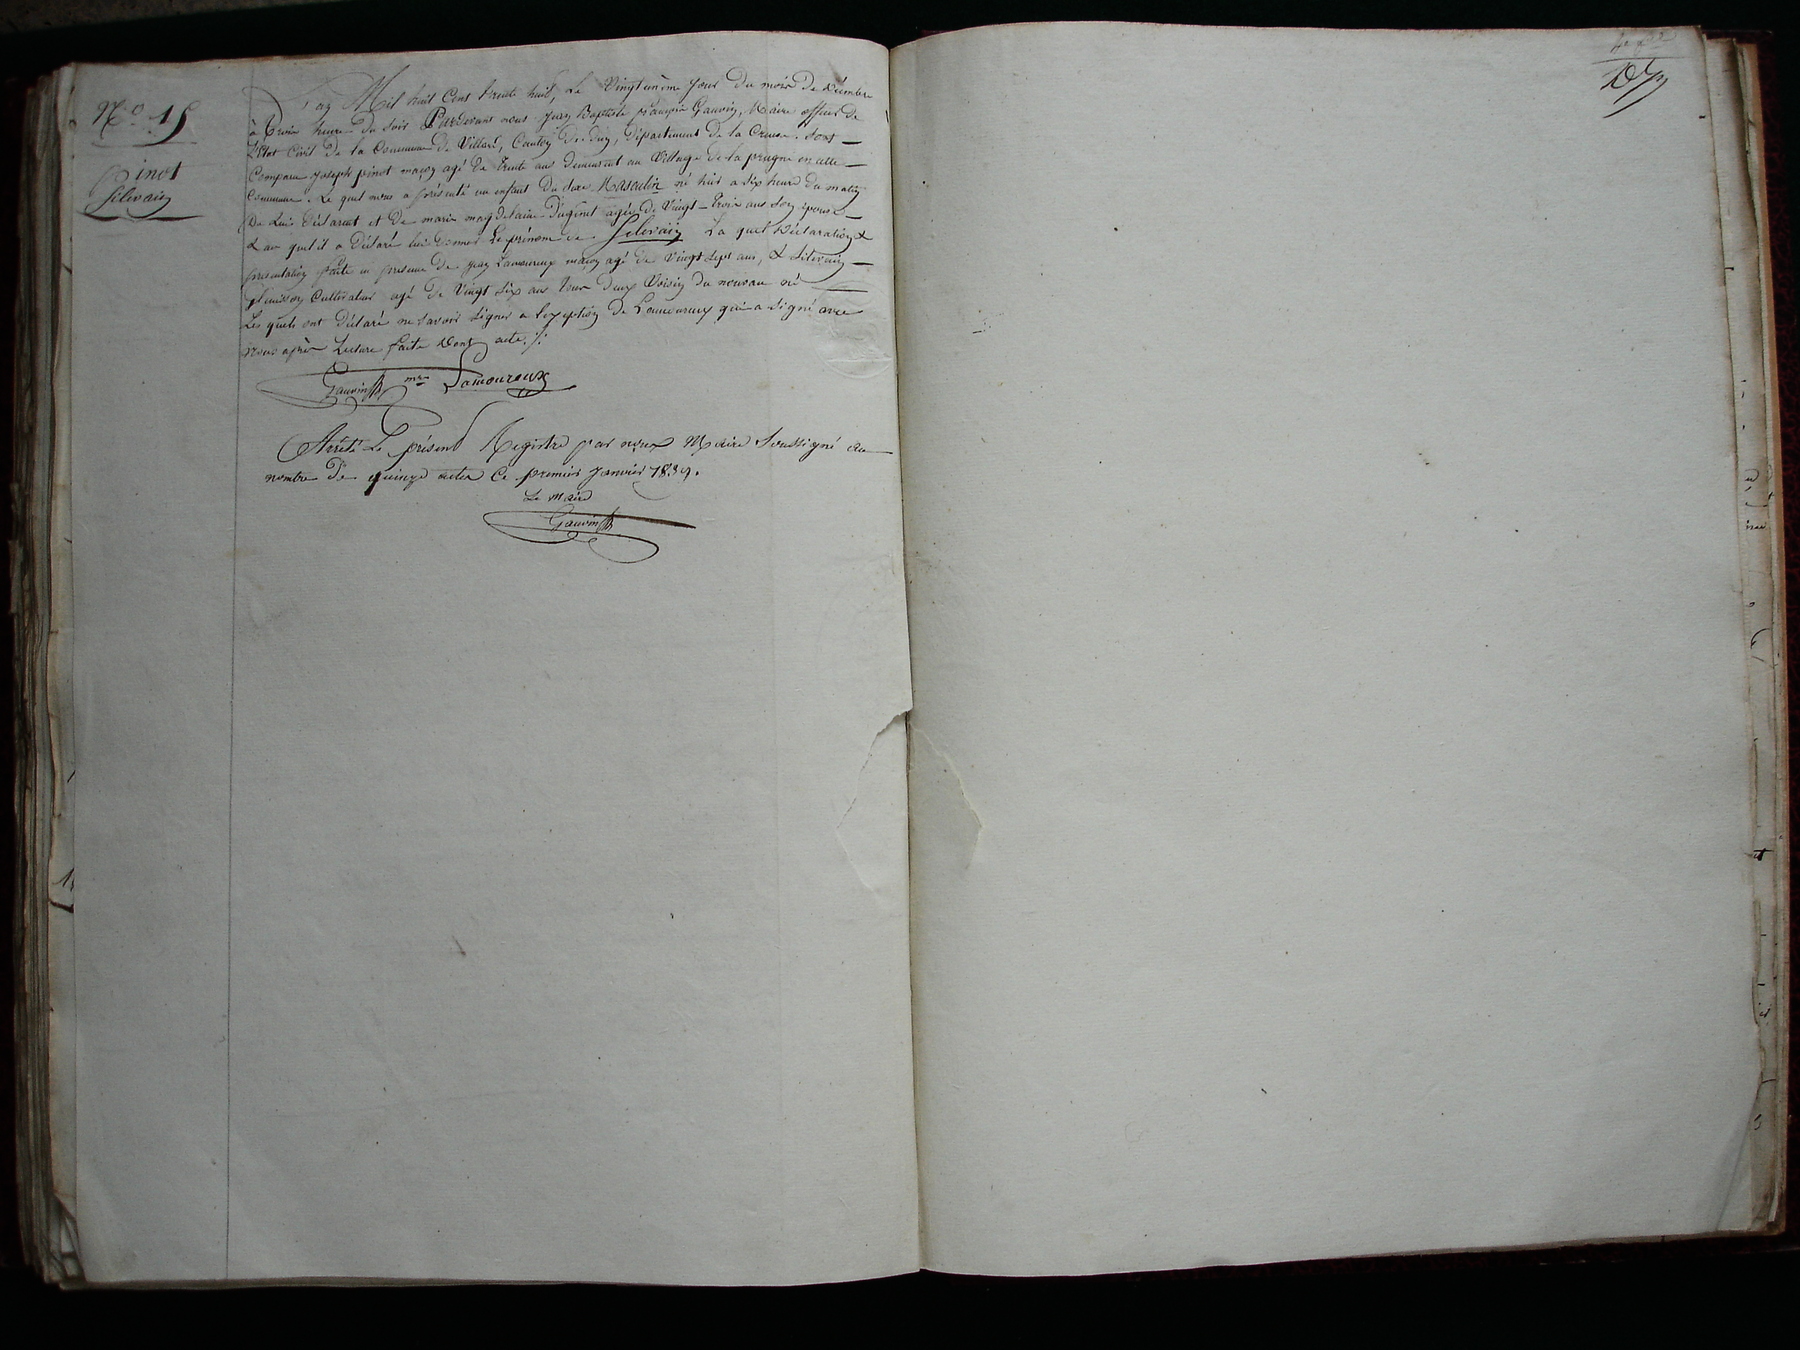 No. 15
pinot
Silvain
L'an Mil huit Cent trente huit, Le Vingt unème jour du mois de décembre
à trois heure du soir Pardevant nous Jean Baptiste françois Gauvin, Maire officier de
L'Etat Civil de la Commune de Villard, Canton de dun, département de la Creuse. sont
Comparu joseph pinot maçon agé de trente ans demeurant au Village de la prugne en cette
Commune. Le quel nous a présenté un enfant du sexe Masculin né hier a six heure du matin
De Lui déclarant et De marie magdelaine agée de Vingt-trois ans son épouse
& au quel il a déclaré lui donner Le prénom de Silevain La quel déclaration &
présentation faite en présence de jean Lamoureux maçon agé de Vingt sept ans, & Silevain
cultivateur agé de Vingt Six ans tous deux Voisin du nouveau né
Les quels ont déclaré ne savoir signer a lexeption de Lamoureux qui a signé avec
nous après Lecture faite dont acte ./.
Gauvin mre Lamoureux
Arrêté Le présent Registre par nous Maire soussigné au
nombre de quinze actes Ce premier janvier 1839.
Le Maire
Gauvin